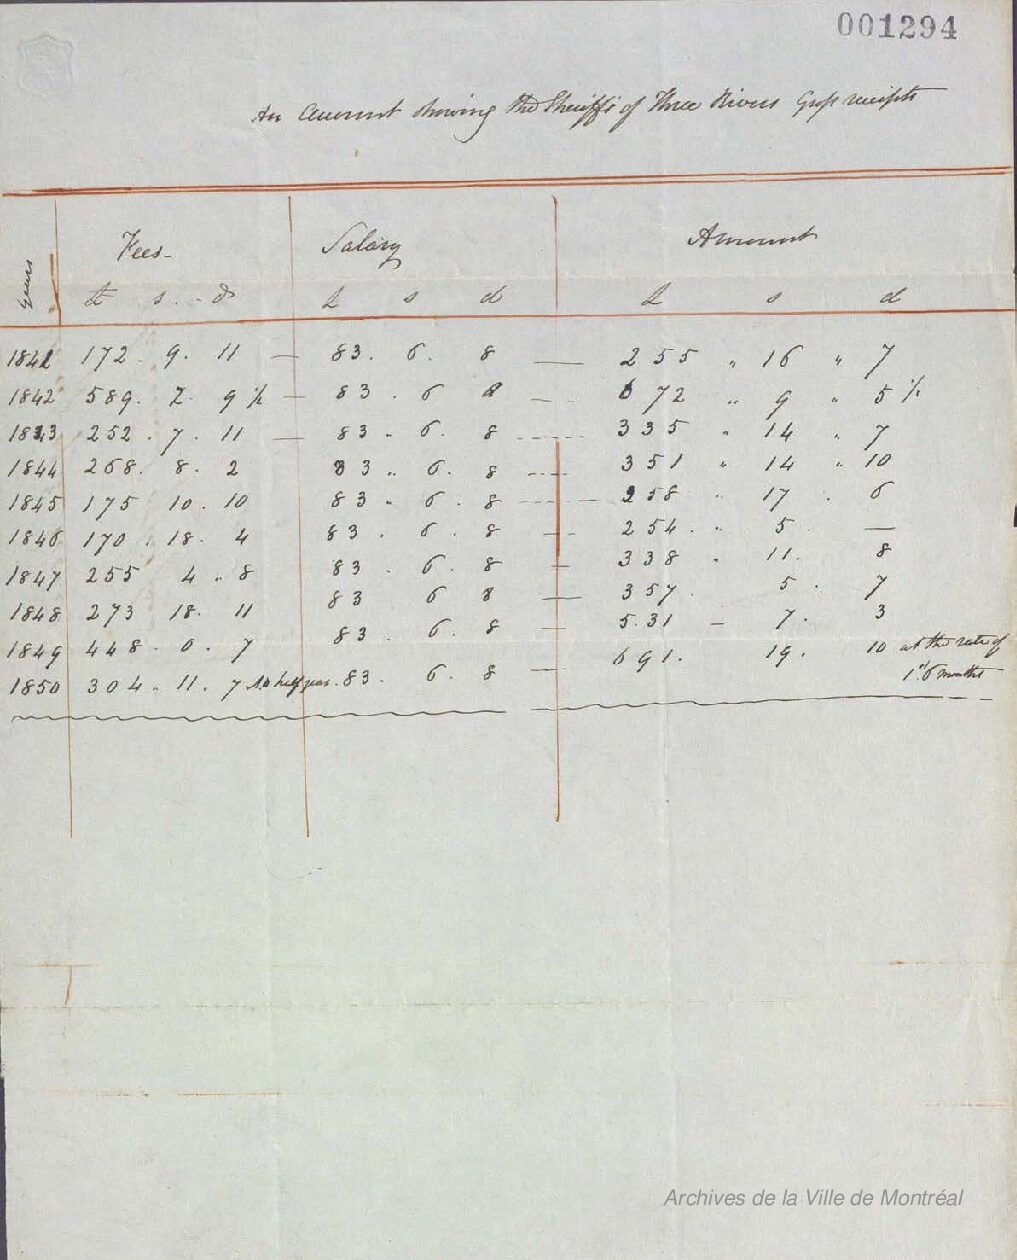 001294
An Account showing the Sheriff's of Three Rivers Gross receipts
Years Fees Salary Amount
£ s d £ s d £ s d
1841 172 . 9 . 11 — 83 . 6 . 8 — 255 " 16 " 7
1842 589 . 2 . 9 ½ — 83 . 6 8 — 672 " 9 " 5 ½
1843 252 . 7 . 11 — 83 . 6 . 8 — 335 " 14 " 7
1844 268 . 8 . 2 83 " 6 . 8 — 351 " 14 " 10
1845 175 10 . 10 83 " 6 . 8 — 258 " 17 . 6
1846 170 . 18 . 4 83 . 6 . 8 — 254 . " 5 —
1847 255 4 " 8 83 . 6 . 8 — 338 " 11 . 8
1848 273 18 . 11 83 6 8 — 357 . 5 . 7
1849 448 . 0 . 7 83 . 6 . 8 — 531 — 7 . 3
1850 304 " 11 . 7 half year . 83 . 6 . 8 — 691 . 19 . 10 at the rate of
1st 6 months
Archives de la Ville de Montréal